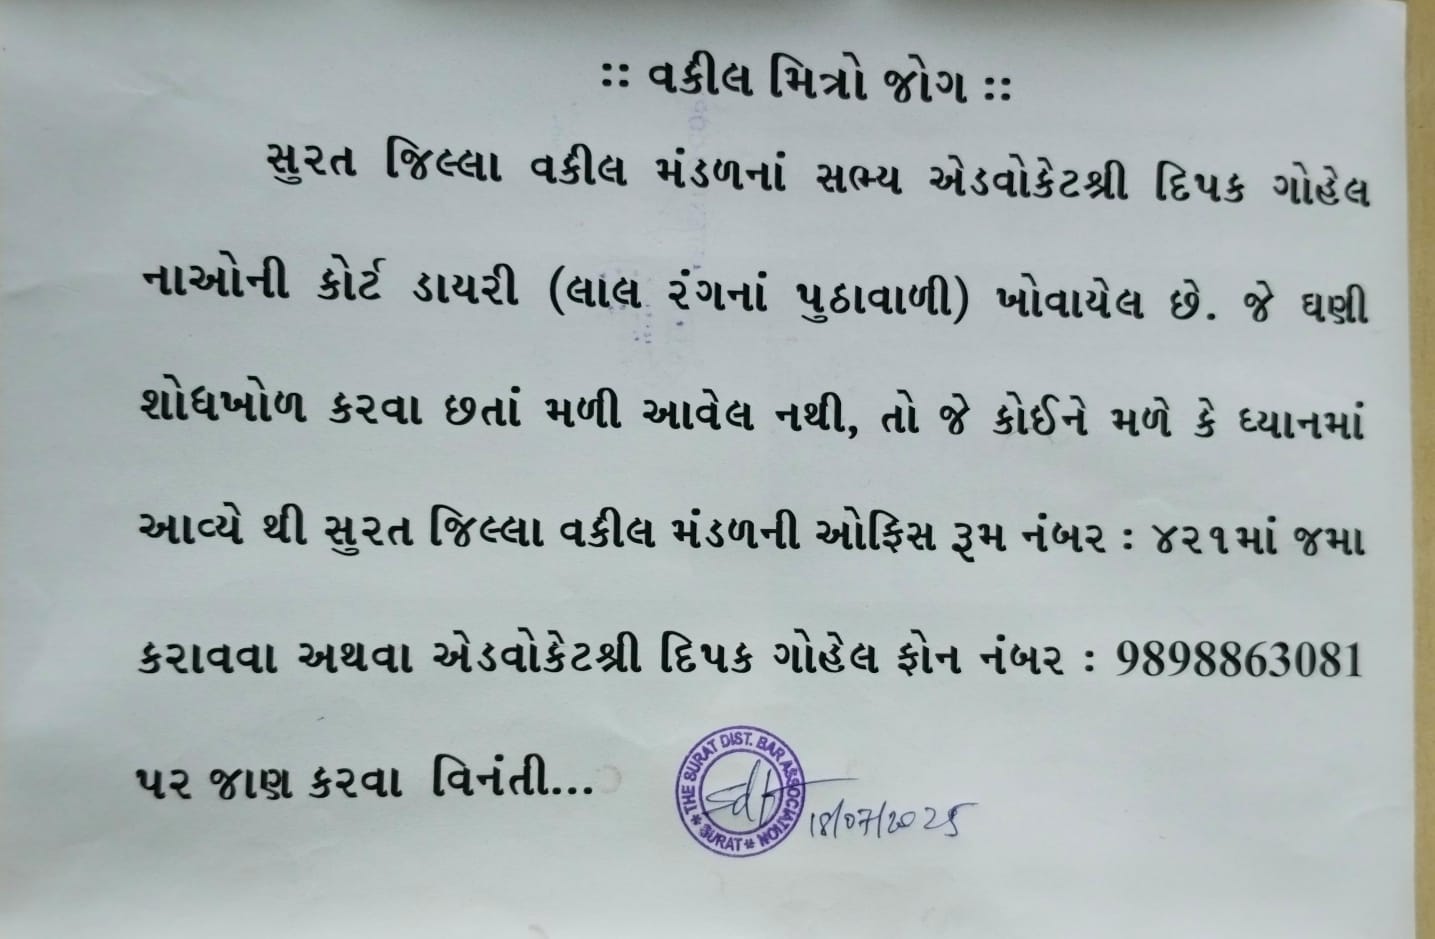 :: વકીલ મિત્રો જોગ ::
સુરત જિલ્લા વકીલ મંડળનાં સભ્ય એડવોકેટશ્રી દિપક ગોહેલ
નાઓની કોર્ટ ડાયરી (લાલ રંગનાં પુઠાવાળી) ખોવાયેલ છે. જે ઘણી
શોધખોળ કરવા છતાં મળી આવેલ નથી, તો જે કોઈને મળે કે ધ્યાનમાં
આવ્યે થી સુરત જિલ્લા વકીલ મંડળની ઓફિસ રૂમ નંબર : ૪૨૧માં જમા
કરાવવા અથવા એડવોકેટશ્રી દિપક ગોહેલ ફોન નંબર : 9898863081
પર જાણ કરવા વિનંતી...
* THE SURAT DIST. BAR ASSOCIATION * SURAT
18/07/2025